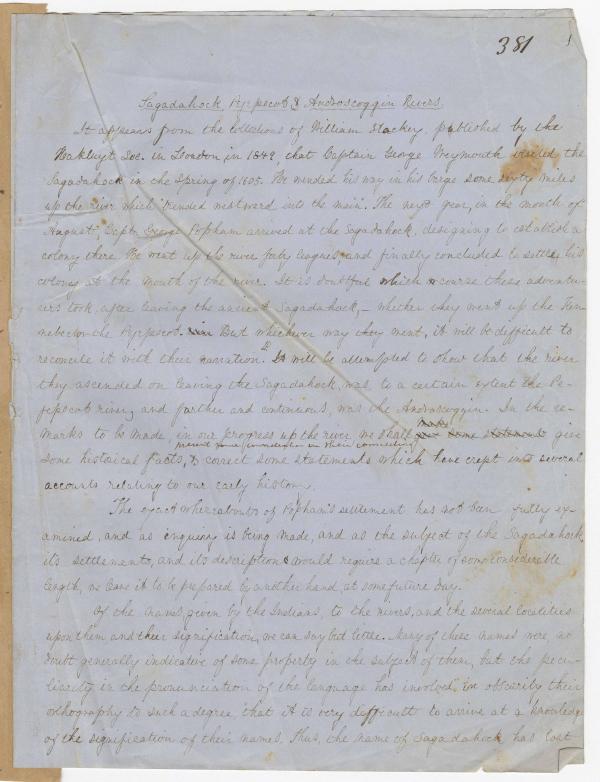 381
Sagadahock, Pejepscot & Androscoggin Rivers.
It appears from the collections of William Stackey, published by the
Hakluyt Soc. in London in 1849, that Captain George Weymouth visited the
Sagadahock in the Spring of 1605. He wended his way in his barge some sixty miles
up the river which trended westward into the main. The next year, in the month of
August, Capt. George Popham arrived at the Sagadahock, designing to establish a
colony there. He went up the river forty leagues, and finally concluded to settle his
colony at the mouth of the river. It is doubtful which course these adventu-
rers took, after leaving the ancient Sagadahock, – whether they went up the Ken-
nebec or the Pejepscot. But whichever way they went, it will be difficult to
reconcile it with their narration. It will be attempted to show that the river
they ascended on leaving the Sagadahock, was, to a certain extent the Pe-
jepscot river, and farther and continuous, was the Androscoggin. In the re-
marks to be made, in our progress up the river we shall give some statements give
some historical facts, & correct some statements which have crept into several
accounts relating to our early history.
The exact whereabouts of Popham's settlement has not been fully ex-
amined, and as enquiry is being made, and as the subject of the Sagadahock,
its settlements, and its description would require a chapter of some considerable
length, we leave it to be prepared by another hand, at some future day.
Of the names given by the Indians, to the rivers, and the several localities
upon them and their signification, we can say but little. Many of these names were, no
doubt generally indicative of some property in the subject of them, but the pecu-
liarity in the pronunciation of the language has involved in obscurity their
orthography to such a degree, that it is very difficult to arrive at a knowledge
of the signification of their names. Thus, the name of Sagadahock has lost